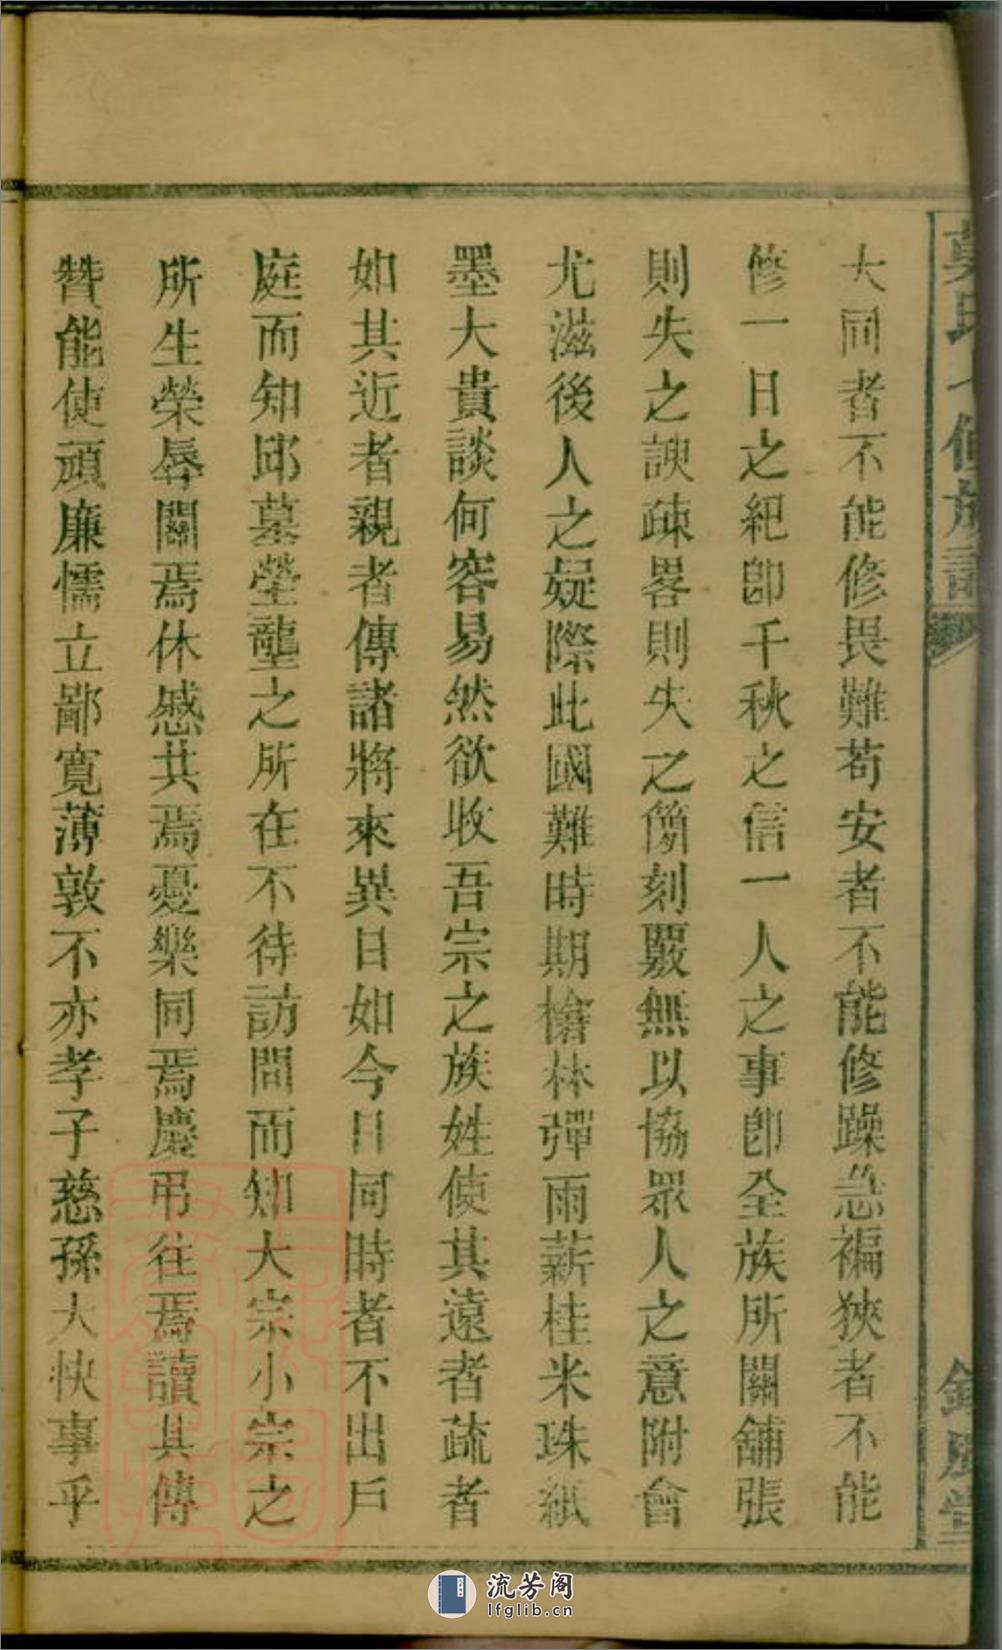 大同者不能修畏難苟安者不能修躁急褊狹者不能
修一日之紀卽千秋之信一人之事卽全族所關舖張
則失之諛疎畧則失之簡刻覈無以協眾人之意附會
尤滋後人之疑際此國難時期槍林彈雨薪桂米珠紙
墨大貴談何容易然欲收吾宗之族姓使其遠者疏者
如其近者親者傳諸將來異日如今日同時者不出戶
庭而知邱墓塋壟之所在不待訪問而知大宗小宗之
所生榮辱關焉休慼共焉憂樂同焉慶弔往焉讀其傳
贊能使頑廉懦立鄙寬薄敦不亦孝子慈孫大快事乎
流芳阁
lfglib.cn